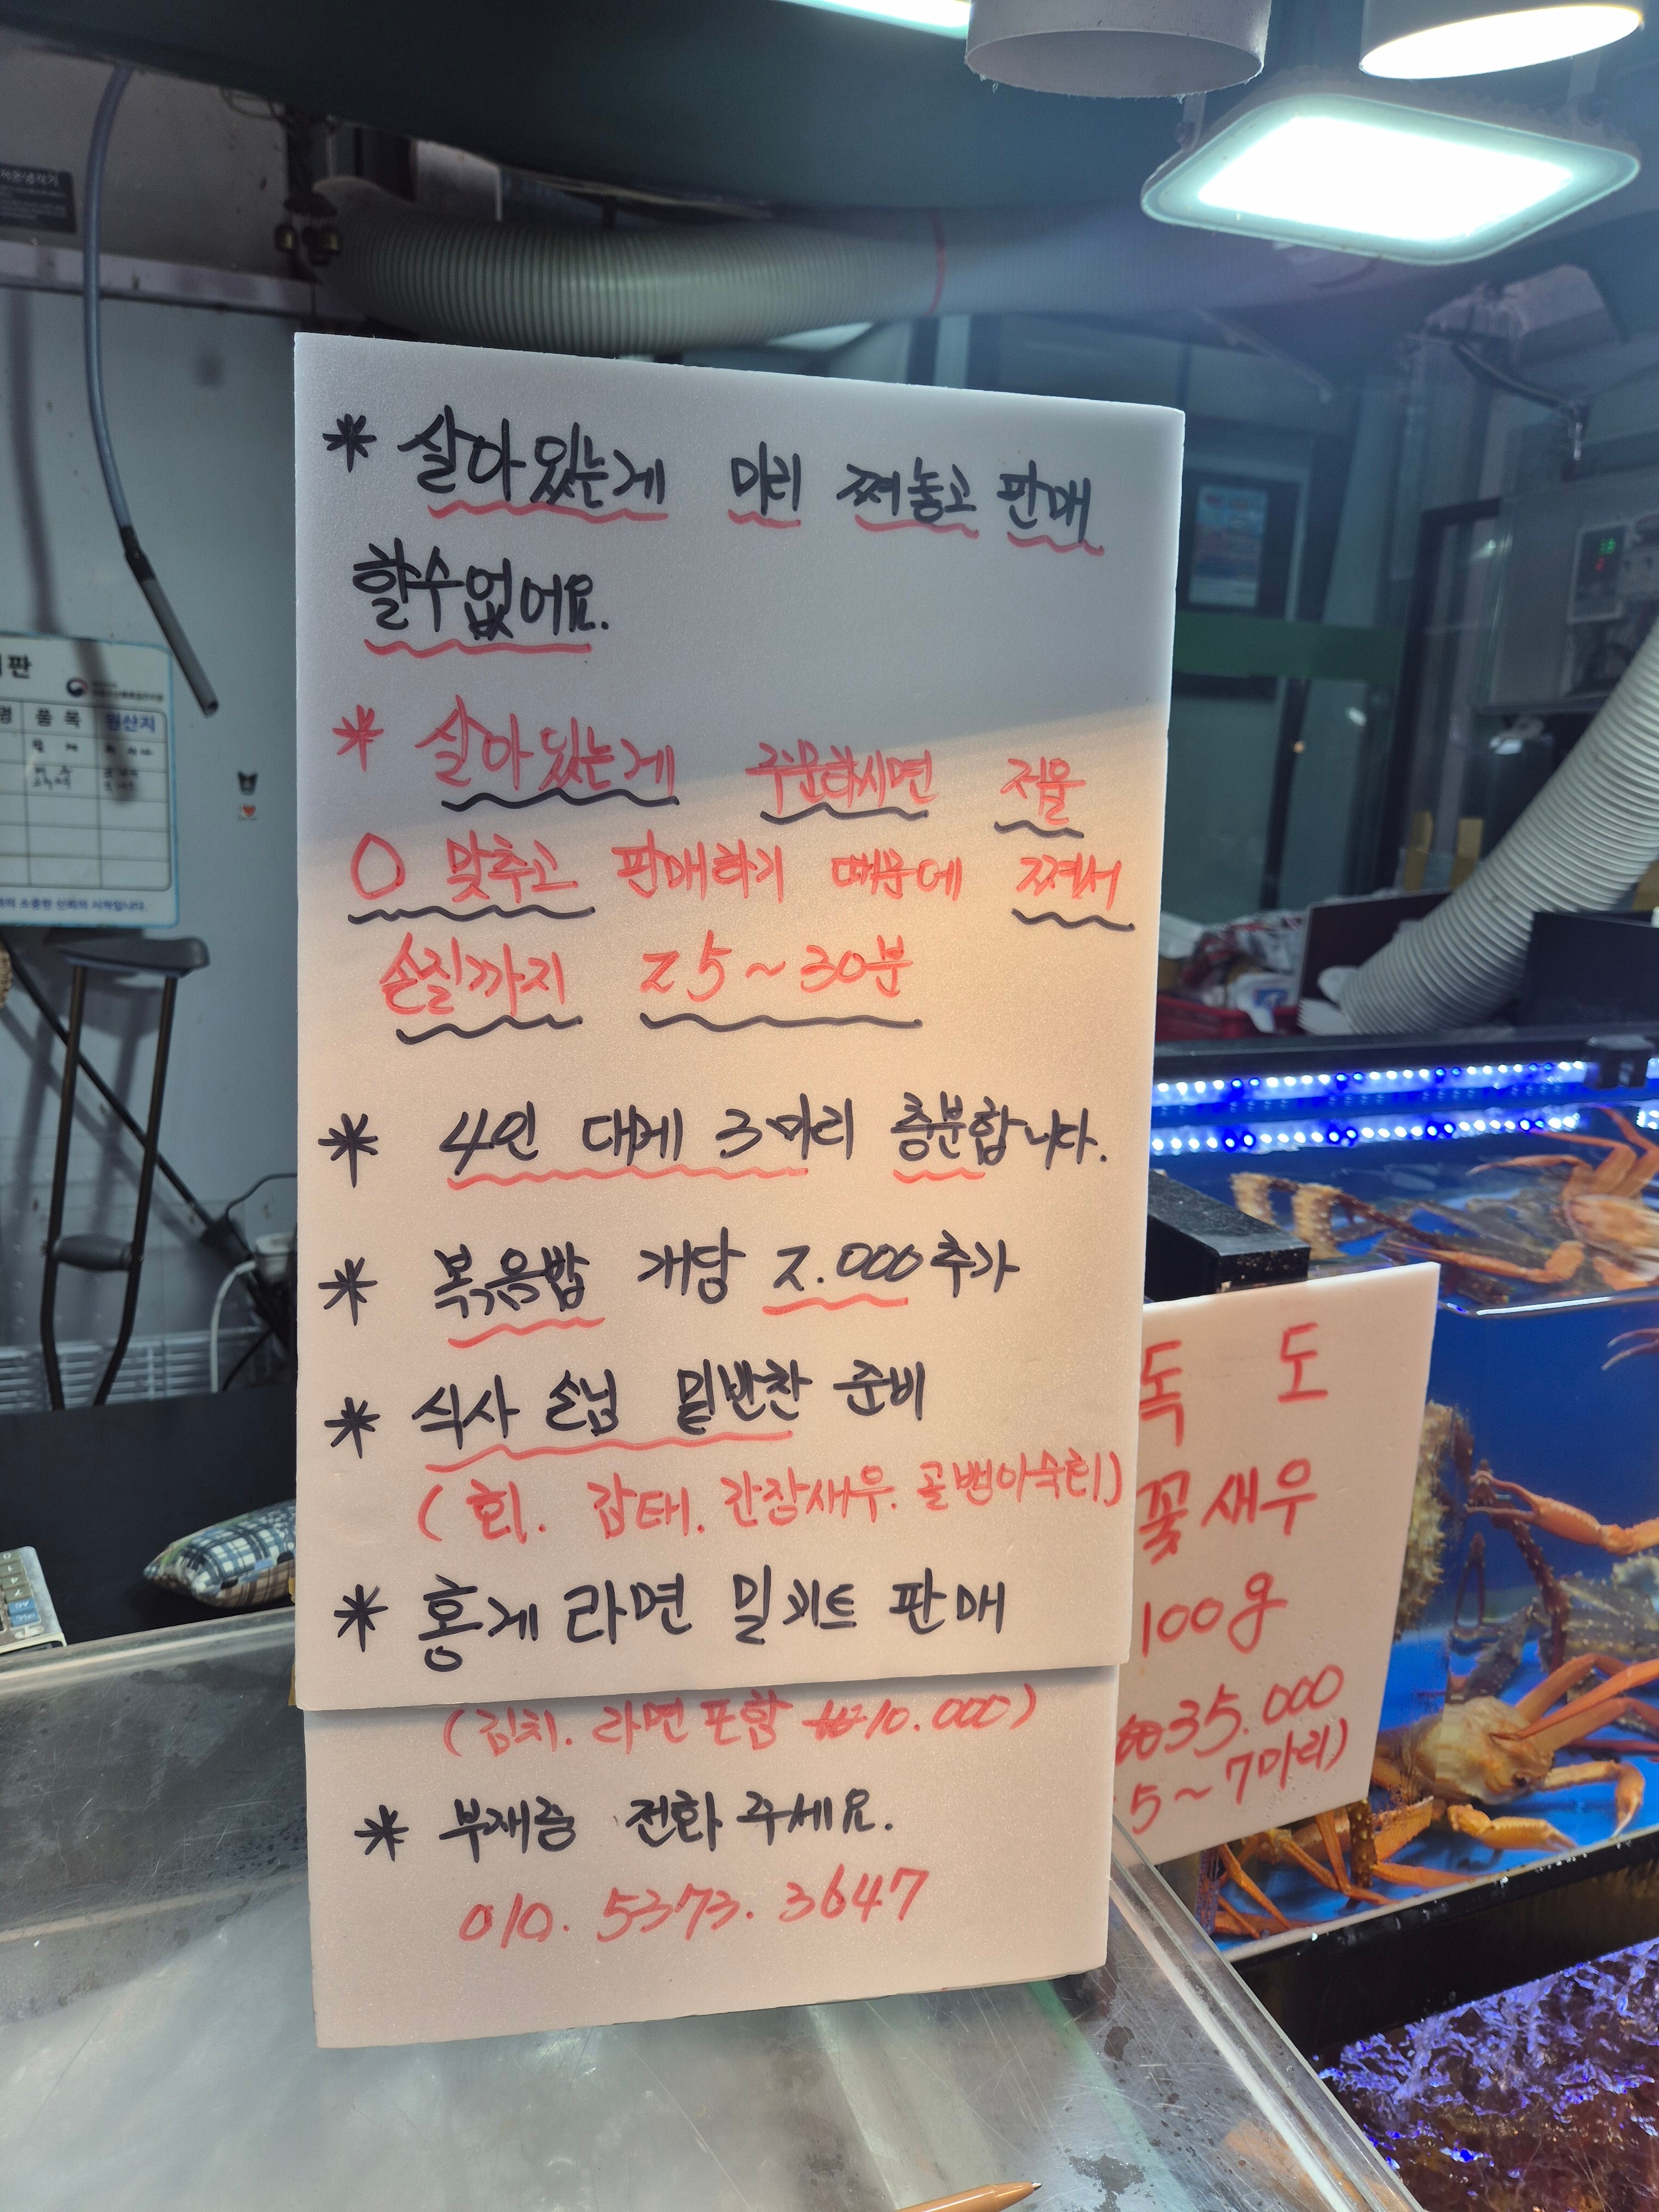 * 살아있는게 미리 쪄놓고 판매
할수없어요.
* 살아있는게 주문하시면 저울
0 맞추고 판매하기 때문에 쪄서
손질까지 25~30분
* 4인 대게 3마리 충분합니다.
* 볶음밥 개당 2.000 추가
* 식사 손님 밑반찬 준비
(회. 감태. 간장새우. 골뱅이숙회)
* 홍게 라면 밀키트 판매
(김치. 라면포함 ₩10.000)
* 부재중 전화 주세요.
010. 5373. 3647
독 도
꽃새우
100g
₩35.000
5~7마리)
판
품목 원산지